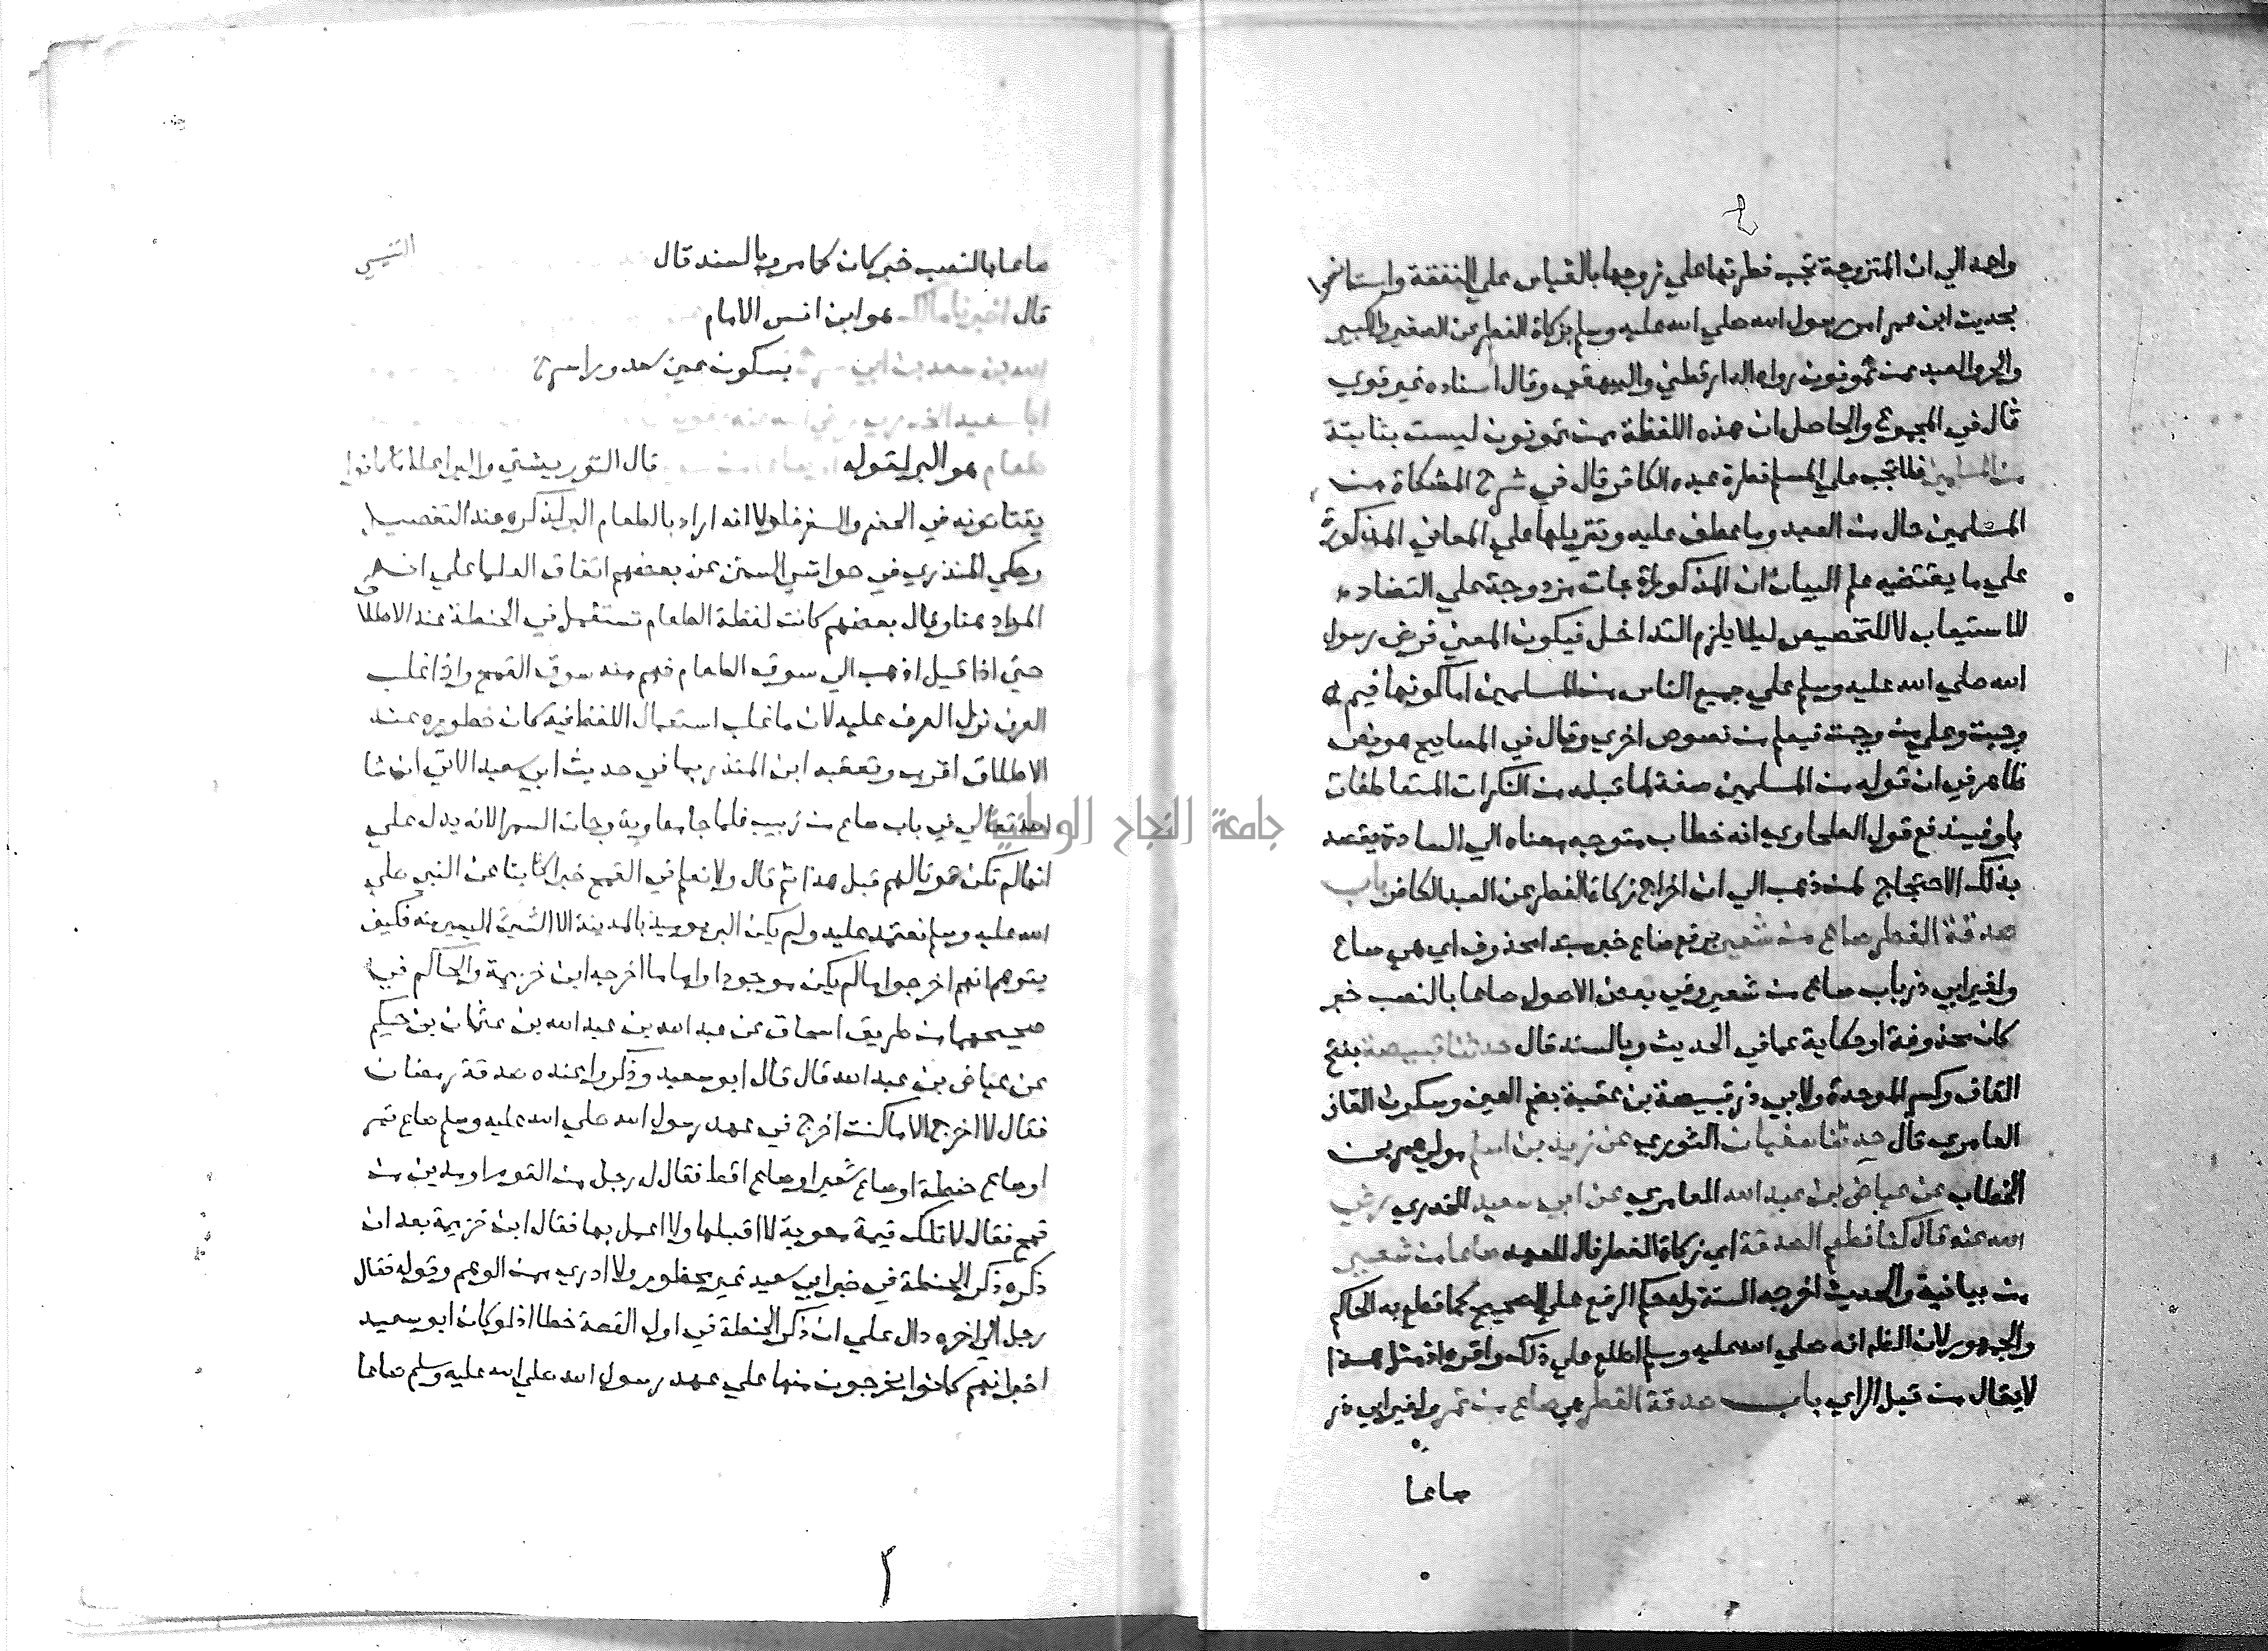 واحمد الي ان المتزوجة تجب فطرتها علي زوجها بالقياس علي النفقة واستانسوا
بحديث ابن عمر امر رسول الله صلي الله عليه وسلم بزكاة الفطر عن الصغير والكبير
والحر والعبد ممن تمونون رواه الدارقطني والبيهقي وقال اسناده غير قوي
قال في المجموع والحاصل ان هذه اللفظة ممن تمونون ليست بثابتة
من المسلمين فلا تجب علي المسلم فطرة عبده الكافر قال في شرح المشكاة من
المسلمين حال من العبد وما عطف عليه وتنزيلها علي المعاني المذكورة
علي ما يقتضيه علم البيان ان المذكورات جات مزدوجة علي التضاد
للاستيعاب لا للتخصيص ليلا يلزم التداخل فيكون المعني فرض رسول
الله صلي الله عليه وسلم علي جميع الناس من المسلمين اما كونها فيم
وجبت وعلي من وجبت فيعلم من نصوص اخري وقال في المصابيح هو نص
ظاهر في ان قوله من المسلمين صفة لما قبله من النكرات المتعاطفات
باو فيندفع قول الطحاوي انه خطاب متوجه معناه الي السادة يقصد
بذلك الاحتجاج لمن ذهب الي ان اخراج زكاة الفطر عن العبد الكافر باب
صدقة الفطر صاع من شعير برفع صاع خبر مبتدا محذوف اي هي صاع
ولغير ابي ذر باب صاع من شعير وفي بعض الاصول صاعا بالنصب خبر
كان محذوفة او حكاية عما في الحديث وبالسند قال حدثنا قبيصة بفتح
القاف وكسر الموحدة ولابي ذر قبيصة بن عقبة بضم العين وسكون القاف
العامري قال حدثنا سفيان الثوري عن زيد بن اسلم مولي عمر بن
الخطاب عن عياض بن عبد الله العامري عن ابي سعيد الخدري رضي
الله عنه قال كنا نطعم الصدقة اي زكاة الفطر فال للعهد صاعا من شعير
من بيانية والحديث اخرجه الستة وله حكم الرفع علي الصحيح كما قطع به الحاكم
والجمهور لان الظاهر انه صلي الله عليه وسلم اطلع علي ذلك واقره اذ مثل هذا
لا يقال من قبل الراي باب صدقة الفطر هي صاع من تمر ولغير ابي ذر
صاعا
صاعا بالنصب خبر كان كما مر وبالسند قال التنيسي
قال اخبرنا مالك هو ابن انس الامام
بن سعد بن ابي سرح بسكون عين سعد ورا سرح
ابا سعيد الخدري رضي الله عنه
طعام هو البر لقوله قال التوربشتي والبر اعلا ما كانوا
يقتاتونه في الحضر والسفر فلولا انه اراد بالطعام البر لذكره عند التفصيل
وحكي المنذري في حواشي السنن عن بعضهم اتفاق العلما علي انه
المراد هنا وقال بعضهم كانت لفظة الطعام تستعمل في الحنطة عند الاطلاق
حتي اذا قيل اذهب الي سوق الطعام فهم منه سوق القمح واذا غلب
العرف نزل العرف عليه لان ما غلب استعمال اللفظ فيه كان خطوره عند
الاطلاق اقرب وتعقبه ابن المنذر بما في حديث ابي سعيد الاتي ان شا
الله تعالي في باب صاع من زبيب فلما جا معاوية وجات السمرا لانه يدل علي
انها لم تكن قوتا لهم قبل هذا ثم قال ولا نعلم في القمح خبرا ثابتا عن النبي صلي
الله عليه وسلم نعتمد عليه ولم يكن البر يوميذ بالمدينة الا الشي اليسير منه فكيف
يتوهم انهم اخرجوا ما لم يكن موجودا واما ما اخرجه ابن خزيمة والحاكم في
صحيحهما من طريق اسحاق عن عبد الله بن عبد الله بن عثمان بن حكيم
عن عياض بن عبد الله قال قال ابو سعيد وذكروا عنده صدقة رمضان
فقال لا اخرج الا ما كنت اخرج في عهد رسول الله صلي الله عليه وسلم صاع تمر
او صاع حنطة او صاع شعير او صاع اقط فقال له رجل من القوم او مدين من
قمح فقال لا تلك قيمة معوية لا اقبلها ولا اعمل بها فقال ابن خزيمة بعد ان
ذكره ذكر الحنطة في خبر ابي سعيد غير محفوظ ولا ادري ممن الوهم وقوله فقال
رجل الي اخره دال علي ان ذكر الحنطة في اول القصة خطا اذ لو كان ابو سعيد
اخبر انهم كانوا يخرجون منها علي عهد رسول الله صلي الله عليه وسلم صاعا
جامعة النجاح الوطنية